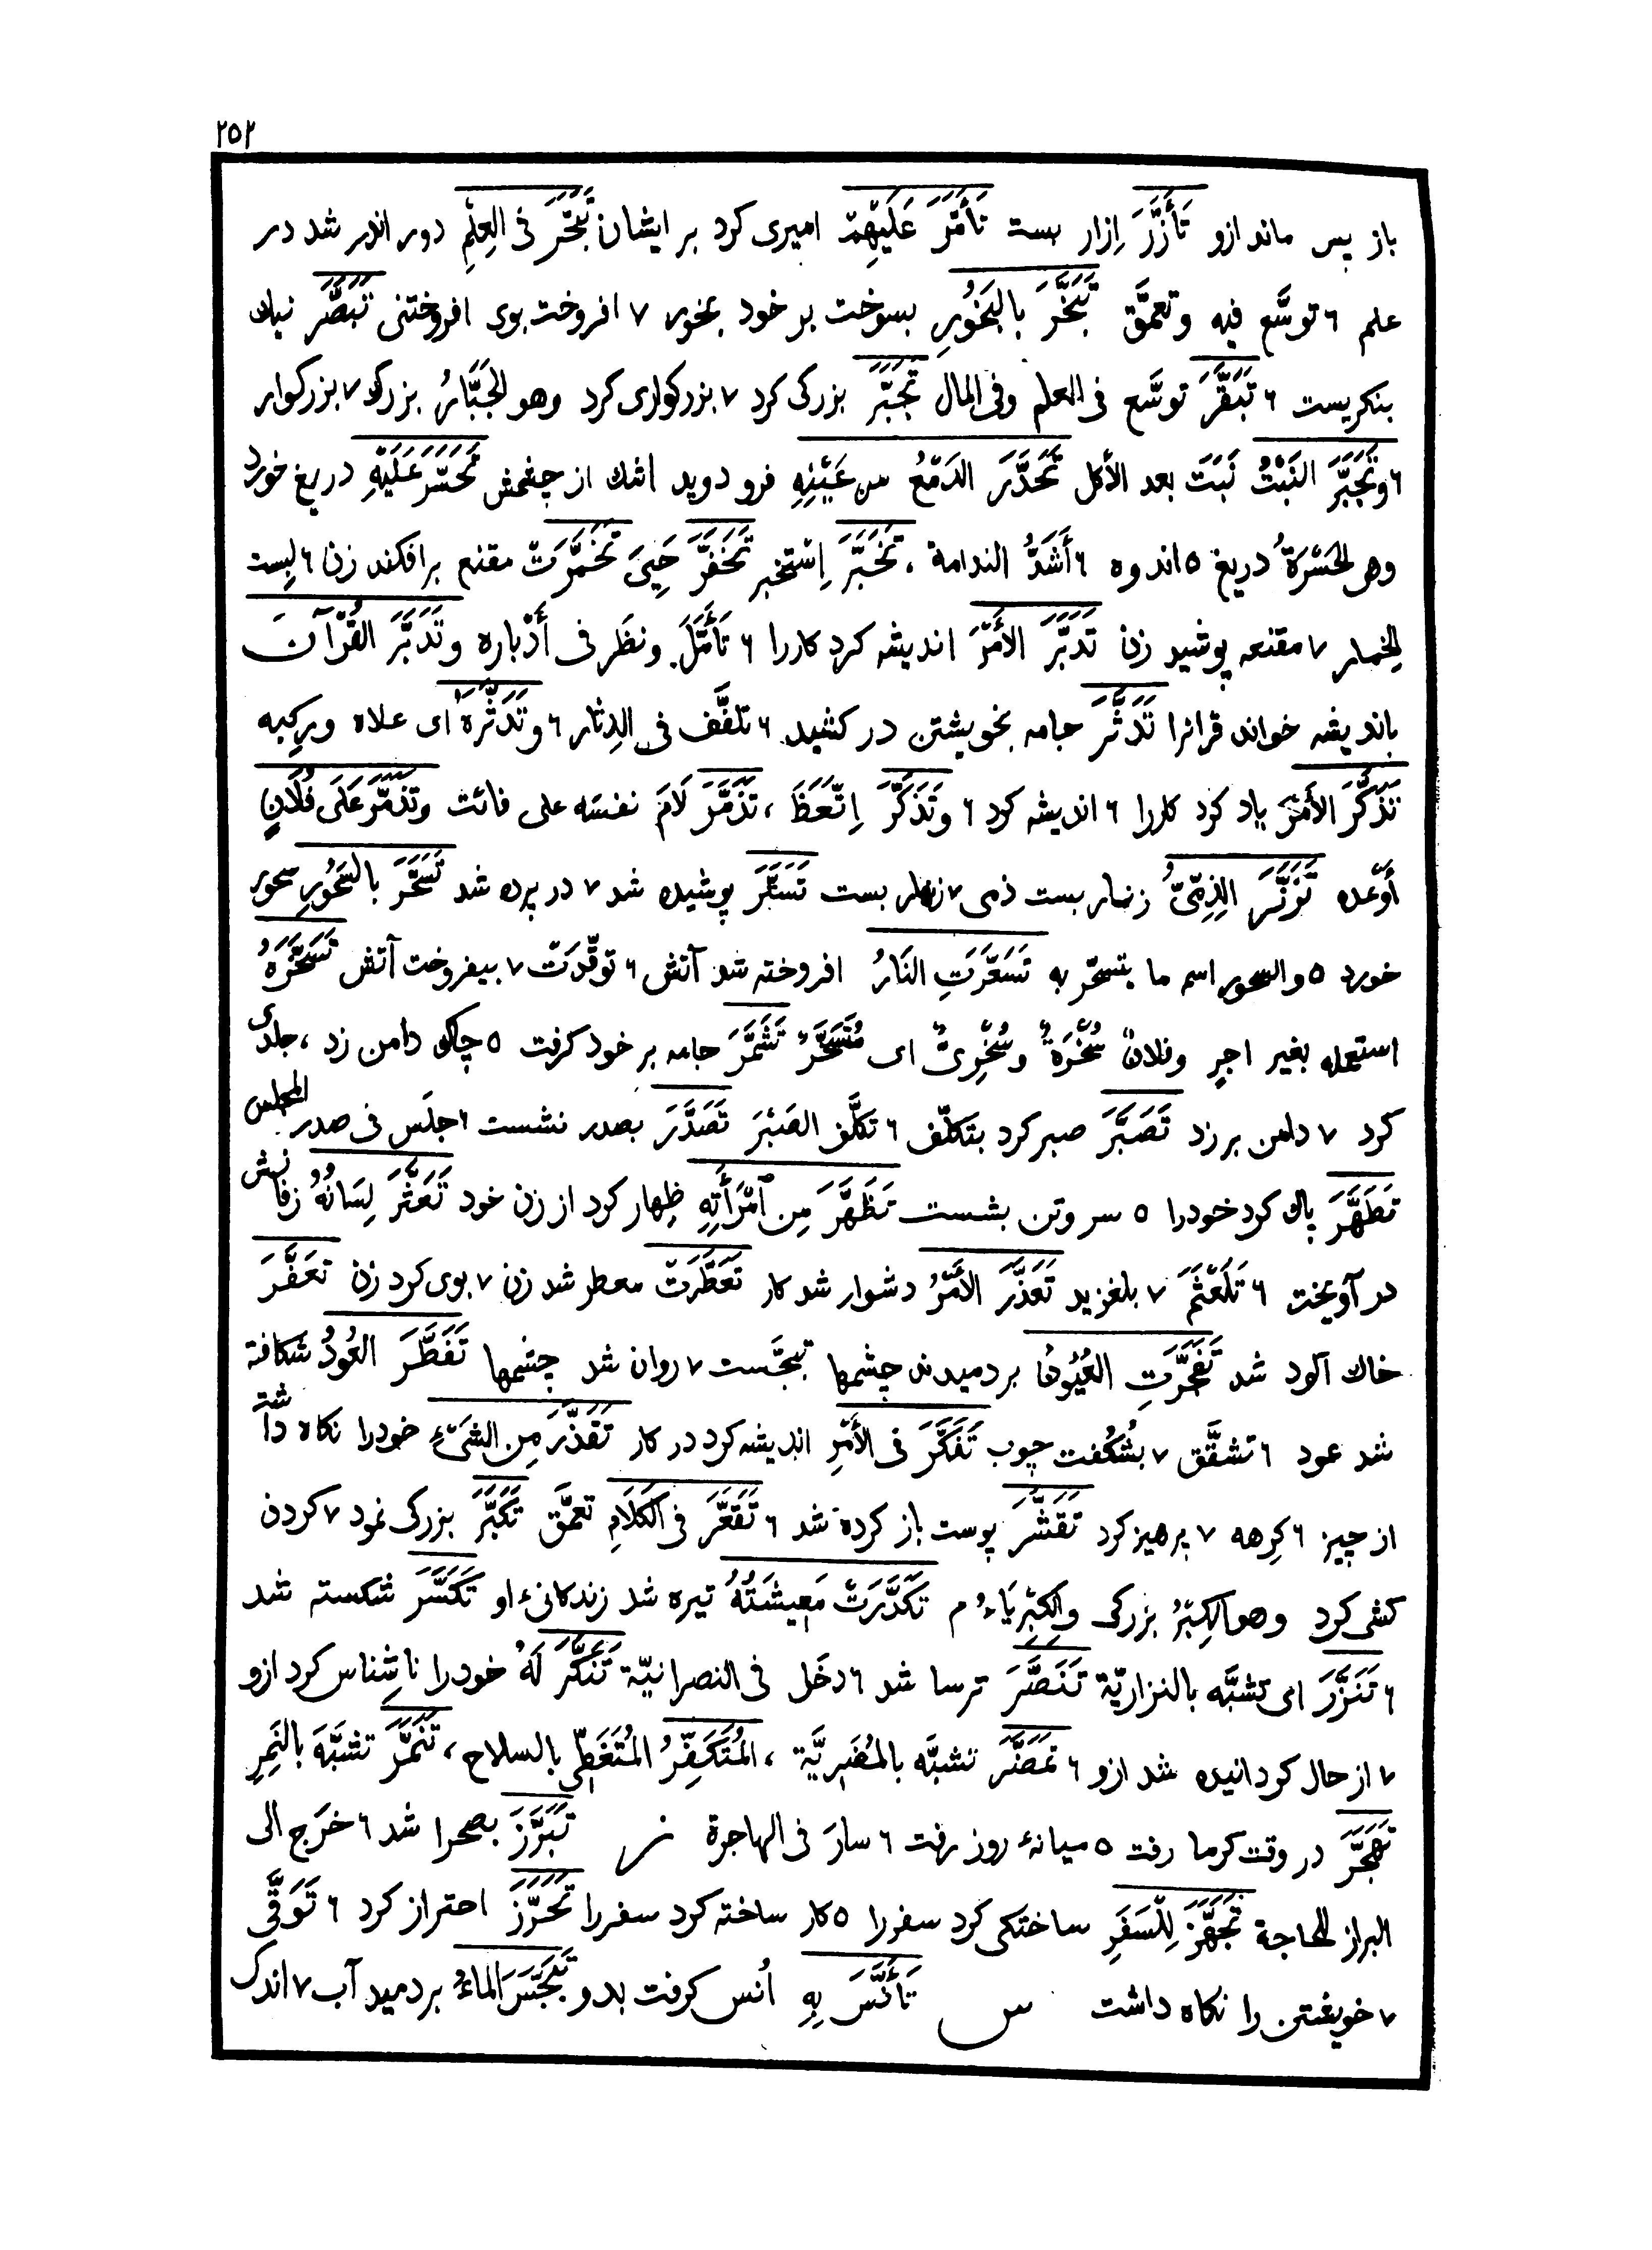 ٢٥٢
باز پس ماند ازو تَأَزَّرَ اِزار بست تَأَمَّرَ عَلَيْهِمْ امیری کرد بر ایشان تَبَحَّرَ فی العِلْمِ دور اندر شد در
علم ٦ توسَّع فیه وتعمَّق تَبَخَّرَ بِالبَخُورِ بسوخت بر خود بخور ٧ افروخت بوی افروختنی تَبَصَّرَ نیك
بنکریست ٦ تَبَقَّرَ توسَّع فی العلم وفی المال تَجَبَّرَ بزرکی کرد ٧ بزرکواری کرد وهو الجَبَّارُ بزرك ٧ بزرکوار
٦ وتَجَبَّرَ النَبْتُ نَبَتَ بعد الأکل تَحَدَّرَ الدَمْعُ من عَيْنِهِ فرو دوید اشك از چشمش تَحَسَّرَ عَلَيْهِ دریغ خورد
وهی الحَسْرَةُ دریغ ٥ اندوه ٦ أَشَدُّ الندامة ، تَخَبَّرَ اِسْتخبر تَخَفَّرَ حَيِیَ تَخَمَّرَتْ مقنع برافکند زن ٦ لبِست
الخمار ٧ مقنعه پوشید زن تَدَبَّرَ الأَمْرَ اندیشه کرد کاررا ٦ تَأَمَّلَ ونظَر فی أَدْباره وتَدَبَّرَ القُرْآنَ
باندیشه خواند قرانرا تَدَثَّرَ جامه بخویشتن در کشید ٦ تلفَّف فی الدِثار ٦ وتَدَثَّرَهُ ای علاه ورکِبه
تَذَكَّرَ الأَمْرَ یاد کرد کاررا ٦ اندیشه کرد ٦ وتَذَكَّرَ اِتَّعَظَ ، تَذَمَّرَ لَامَ نفسَه علی فائت وتَذَمَّرَ عَلَی فُلَانٍ
أَوْعده تَزَنَّرَ الذِمِّیُّ زنار بست ذمی ٧ زنار بست تَسَتَّرَ پوشیده شد ٧ در پرده شد تَسَحَّرَ بِالسَحُورِ سحور
خورد ٥ والسحور اسم ما یتسحّر به تَسَعَّرَتِ النَارُ افروخته شد آتش ٦ توقَّدَتْ ٧ بیفروخت آتش تَسَخَّرَهُ
استعمله بغیر اجرٍ وفلانٌ سُخْرَةٌ وسُخْرِیٌّ ای مُتَسَخَّرٌ تَشَمَّرَ جامه بر خود کرفت ٥ چاکی دامن زد ، جلدی
کرد ٧ دامن بر زد تَصَبَّرَ صبر کرد بتکلّف ٦ تکلَّف الصَبْرَ تَصَدَّرَ بصدر نشست ٦ جلَس فی صدر المجلس
تَطَهَّرَ پاك کرد خودرا ٥ سر وتن بشست تَظَهَّرَ مِنِ ٱمْرَأَتِهِ ظِهار کرد از زن خود تَعَثَّرَ لِسَانُهُ زفانش
در آویخت ٦ تَلَعْثَمَ ٧ بلغزید تَعَذَّرَ الأَمْرُ دشوار شد کار تَعَطَّرَتْ معطر شد زن ٧ بوی کرد زن تَعَفَّرَ
خاك آلود شد تَفَجَّرَتِ العُيُونُ بردمیدند چشمها تبجَّست ٧ روان شد چشمها تَفَطَّرَ العُودُ شکافته
شد عود ٦ تشقَّق ٧ بشُکُفت چوب تَفَكَّرَ فی الأَمْرِ اندیشه کرد در کار تَقَذَّرَ مِن الشَیْءِ خودرا نکاه داشت
از چیز ٦ کرِهه ٧ پرهیز کرد تَقَشَّرَ پوست باز کرده شد ٦ تَقَعَّرَ فی الكَلَامِ تعمَّق تَكَبَّرَ بزرکی نمود ٧ کردن
کشی کرد وهو الكِبْرُ بزرکی والكِبْرِيَاءُ م تَكَدَّرَتْ مَعِيشَتُهُ تیره شد زندکانیءِ او تَكَسَّرَ شکسته شد
٦ تَنَزَّرَ ای تشبَّه بالنزاریّة تَنَصَّرَ ترسا شد ٦ دخَل فی النصرانیّة تَنَكَّرَ لَهُ خودرا ناشناس کرد ازو
٧ از حال کردانیده شد ازو ٦ تَمَضَّرَ تشبَّه بالمُضَرِیَّة ، المُتَكَفِّرُ المُتَغَطِّی بالسلاح ، تَنَمَّرَ تشبَّهَ بالنَمِرِ
تَهَجَّرَ در وقت کرما رفت ٥ میانهٔ روز رفت ٦ سارَ فی الهاجرة ز تَبَرَّزَ بصحرا شد ٦ خرَج الی
البراز للحاجة تَجَهَّزَ لِلسَفَرِ ساختکی کرد سفررا ٥ کار ساخته کرد سفررا تَحَرَّزَ احتراز کرد ٦ تَوَقَّی
٧ خویشتن را نکاه داشت س تَأَنَّسَ بِهِ اُنس کرفت بدو تَبَجَّسَ المَاءُ بردمید آب ٧ اندك